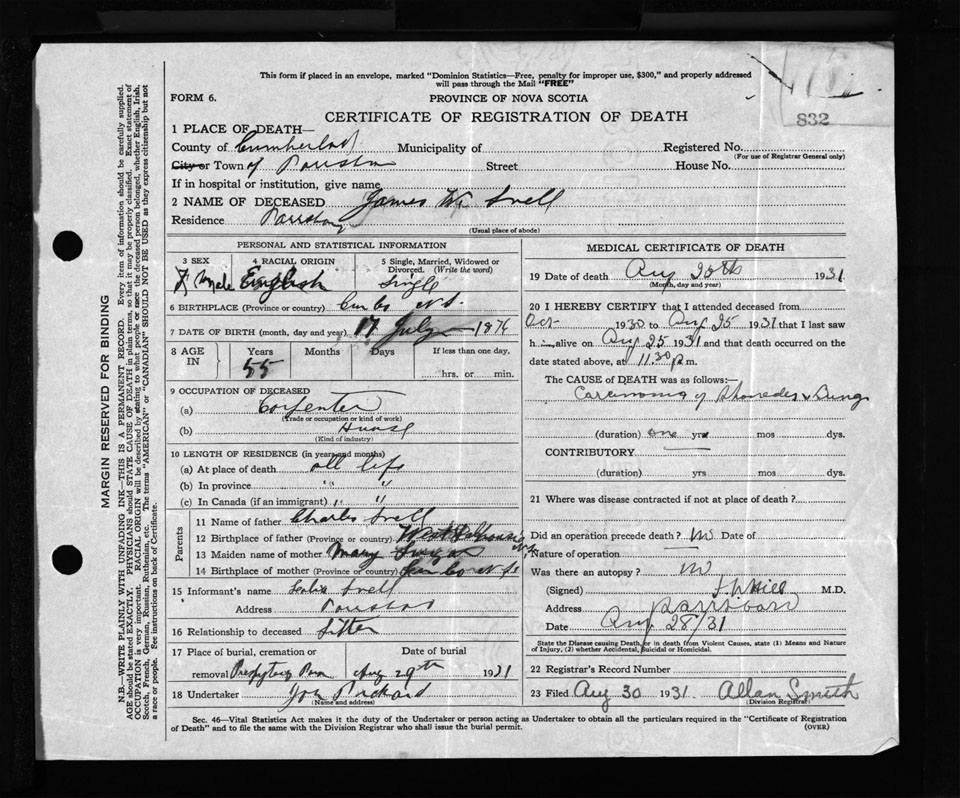 This form if placed in an envelope, marked "Dominion Statistics—Free, penalty for improper use, $300," and properly addressed
will pass through the Mail "FREE"
832
FORM 6.
PROVINCE OF NOVA SCOTIA
CERTIFICATE OF REGISTRATION OF DEATH
1 PLACE OF DEATH—
County of Cumberland Municipality of Registered No.
(For use of Registrar General only)
City or Town of Street House No.
If in hospital or institution, give name
2 NAME OF DECEASED James W.
Residence
(Usual place of abode)
PERSONAL AND STATISTICAL INFORMATION
3 SEX 4 RACIAL ORIGIN 5 Single, Married, Widowed or
Divorced. (Write the word)
Male English Single
6 BIRTHPLACE (Province or country) N.S.
7 DATE OF BIRTH (month, day and year) 17 July 1876
8 AGE IN Years Months Days If less than one day,
55 hrs. or min.
9 OCCUPATION OF DECEASED
(a) Carpenter
(Trade or occupation or kind of work)
(b) House
(Kind of industry)
10 LENGTH OF RESIDENCE (in years and months)
(a) At place of death all life
(b) In province " "
(c) In Canada (if an immigrant) " "
Parents
11 Name of father Charles
12 Birthplace of father (Province or country) West
13 Maiden name of mother Mary
14 Birthplace of mother (Province or country) N.S.
15 Informant's name
Address
16 Relationship to deceased Sister
17 Place of burial, cremation or Date of burial
removal Aug 29th 1931
18 Undertaker
(Name and address)
MEDICAL CERTIFICATE OF DEATH
19 Date of death Aug 1931
(Month, day and year)
20 I HEREBY CERTIFY that I attended deceased from
Oct 1930 to Aug 25 1931 that I last saw
h alive on Aug 25 1931 and that death occurred on the
date stated above, at 11.30 p.m.
The CAUSE of DEATH was as follows:—
Carcinoma of
(duration) one yrs mos dys.
CONTRIBUTORY
(duration) yrs mos dys.
21 Where was disease contracted if not at place of death?
Did an operation precede death? no Date of
Nature of operation
Was there an autopsy? no
(Signed) Hill M.D.
Address Parrsboro
Date Aug 28/31
State the Disease causing Death, or in death from Violent Causes, state (1) Means and Nature
of Injury, (2) whether Accidental, Suicidal or Homicidal.
22 Registrar's Record Number
23 Filed Aug 30 1931. Allan Smith
(Division Registrar)
Sec. 46—Vital Statistics Act makes it the duty of the Undertaker or person acting as Undertaker to obtain all the particulars required in the "Certificate of Registration
of Death" and to file the same with the Division Registrar who shall issue the burial permit. (OVER)
MARGIN RESERVED FOR BINDING
N.B.—WRITE PLAINLY WITH UNFADING INK—THIS IS A PERMANENT RECORD. Every item of information should be carefully supplied.
AGE should be stated EXACTLY. PHYSICIANS should STATE CAUSE OF DEATH in plain terms, so that it may be properly classified. Exact statement of
OCCUPATION is very important. RACIAL ORIGIN will be described by stating to what people or race the deceased person belonged, whether English, Irish,
Scotch, French, German, Russian, Ruthenian, etc. The terms "AMERICAN" or "CANADIAN" SHOULD NOT BE USED as they express citizenship but not
a race or people. See instructions on back of Certificate.